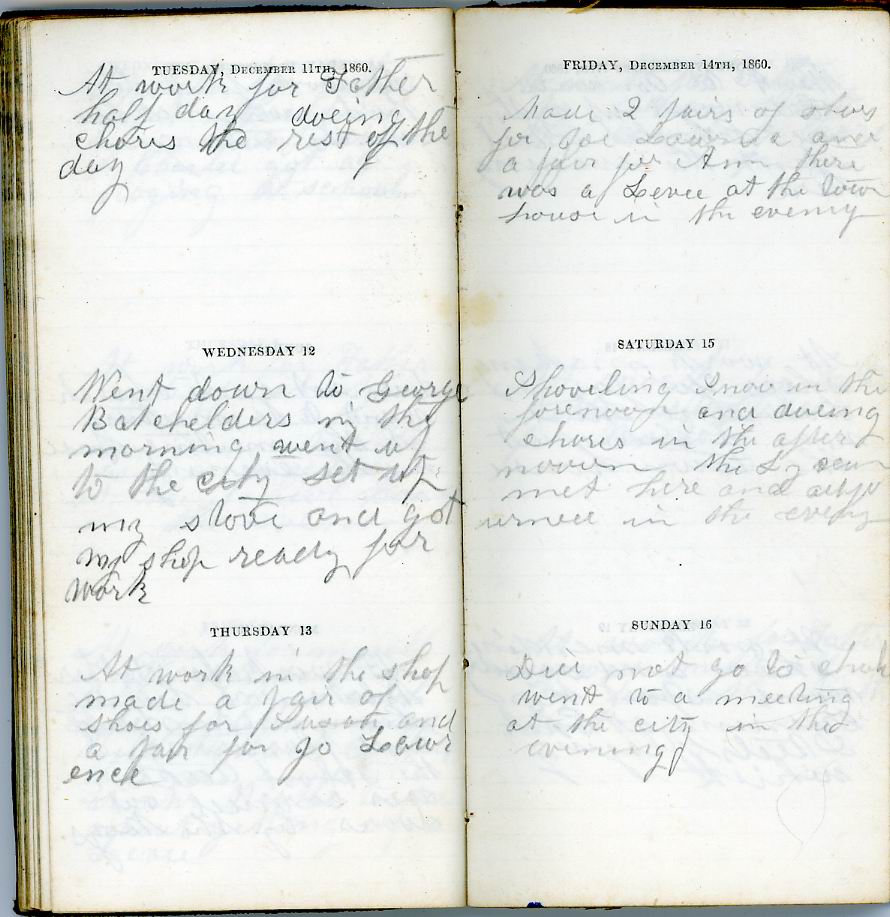 TUESDAY, DECEMBER 11TH, 1860.
At work for Father
half day doeing
chores the rest of the
day
WEDNESDAY 12
Went down to George
Batchelders in the
morning went up
to the city set up
my stove and got
my shop ready for
work
THURSDAY 13
At work in the shop
made a pair of
shoes for Susan and
a pair for Jo Lawr
ence
FRIDAY, DECEMBER 14TH, 1860.
Made 2 pairs of shoes
for Joe Lawrence and
a pair for Ann there
was a Levee at the town
house in the evening
SATURDAY 15
Shoveling Snow in the
forenoon and doeing
chores in the after
nooon the Lyceum
met here and adjo
urned in the evening
SUNDAY 16
Did not go to
went to a meeting
at the city in the
evening